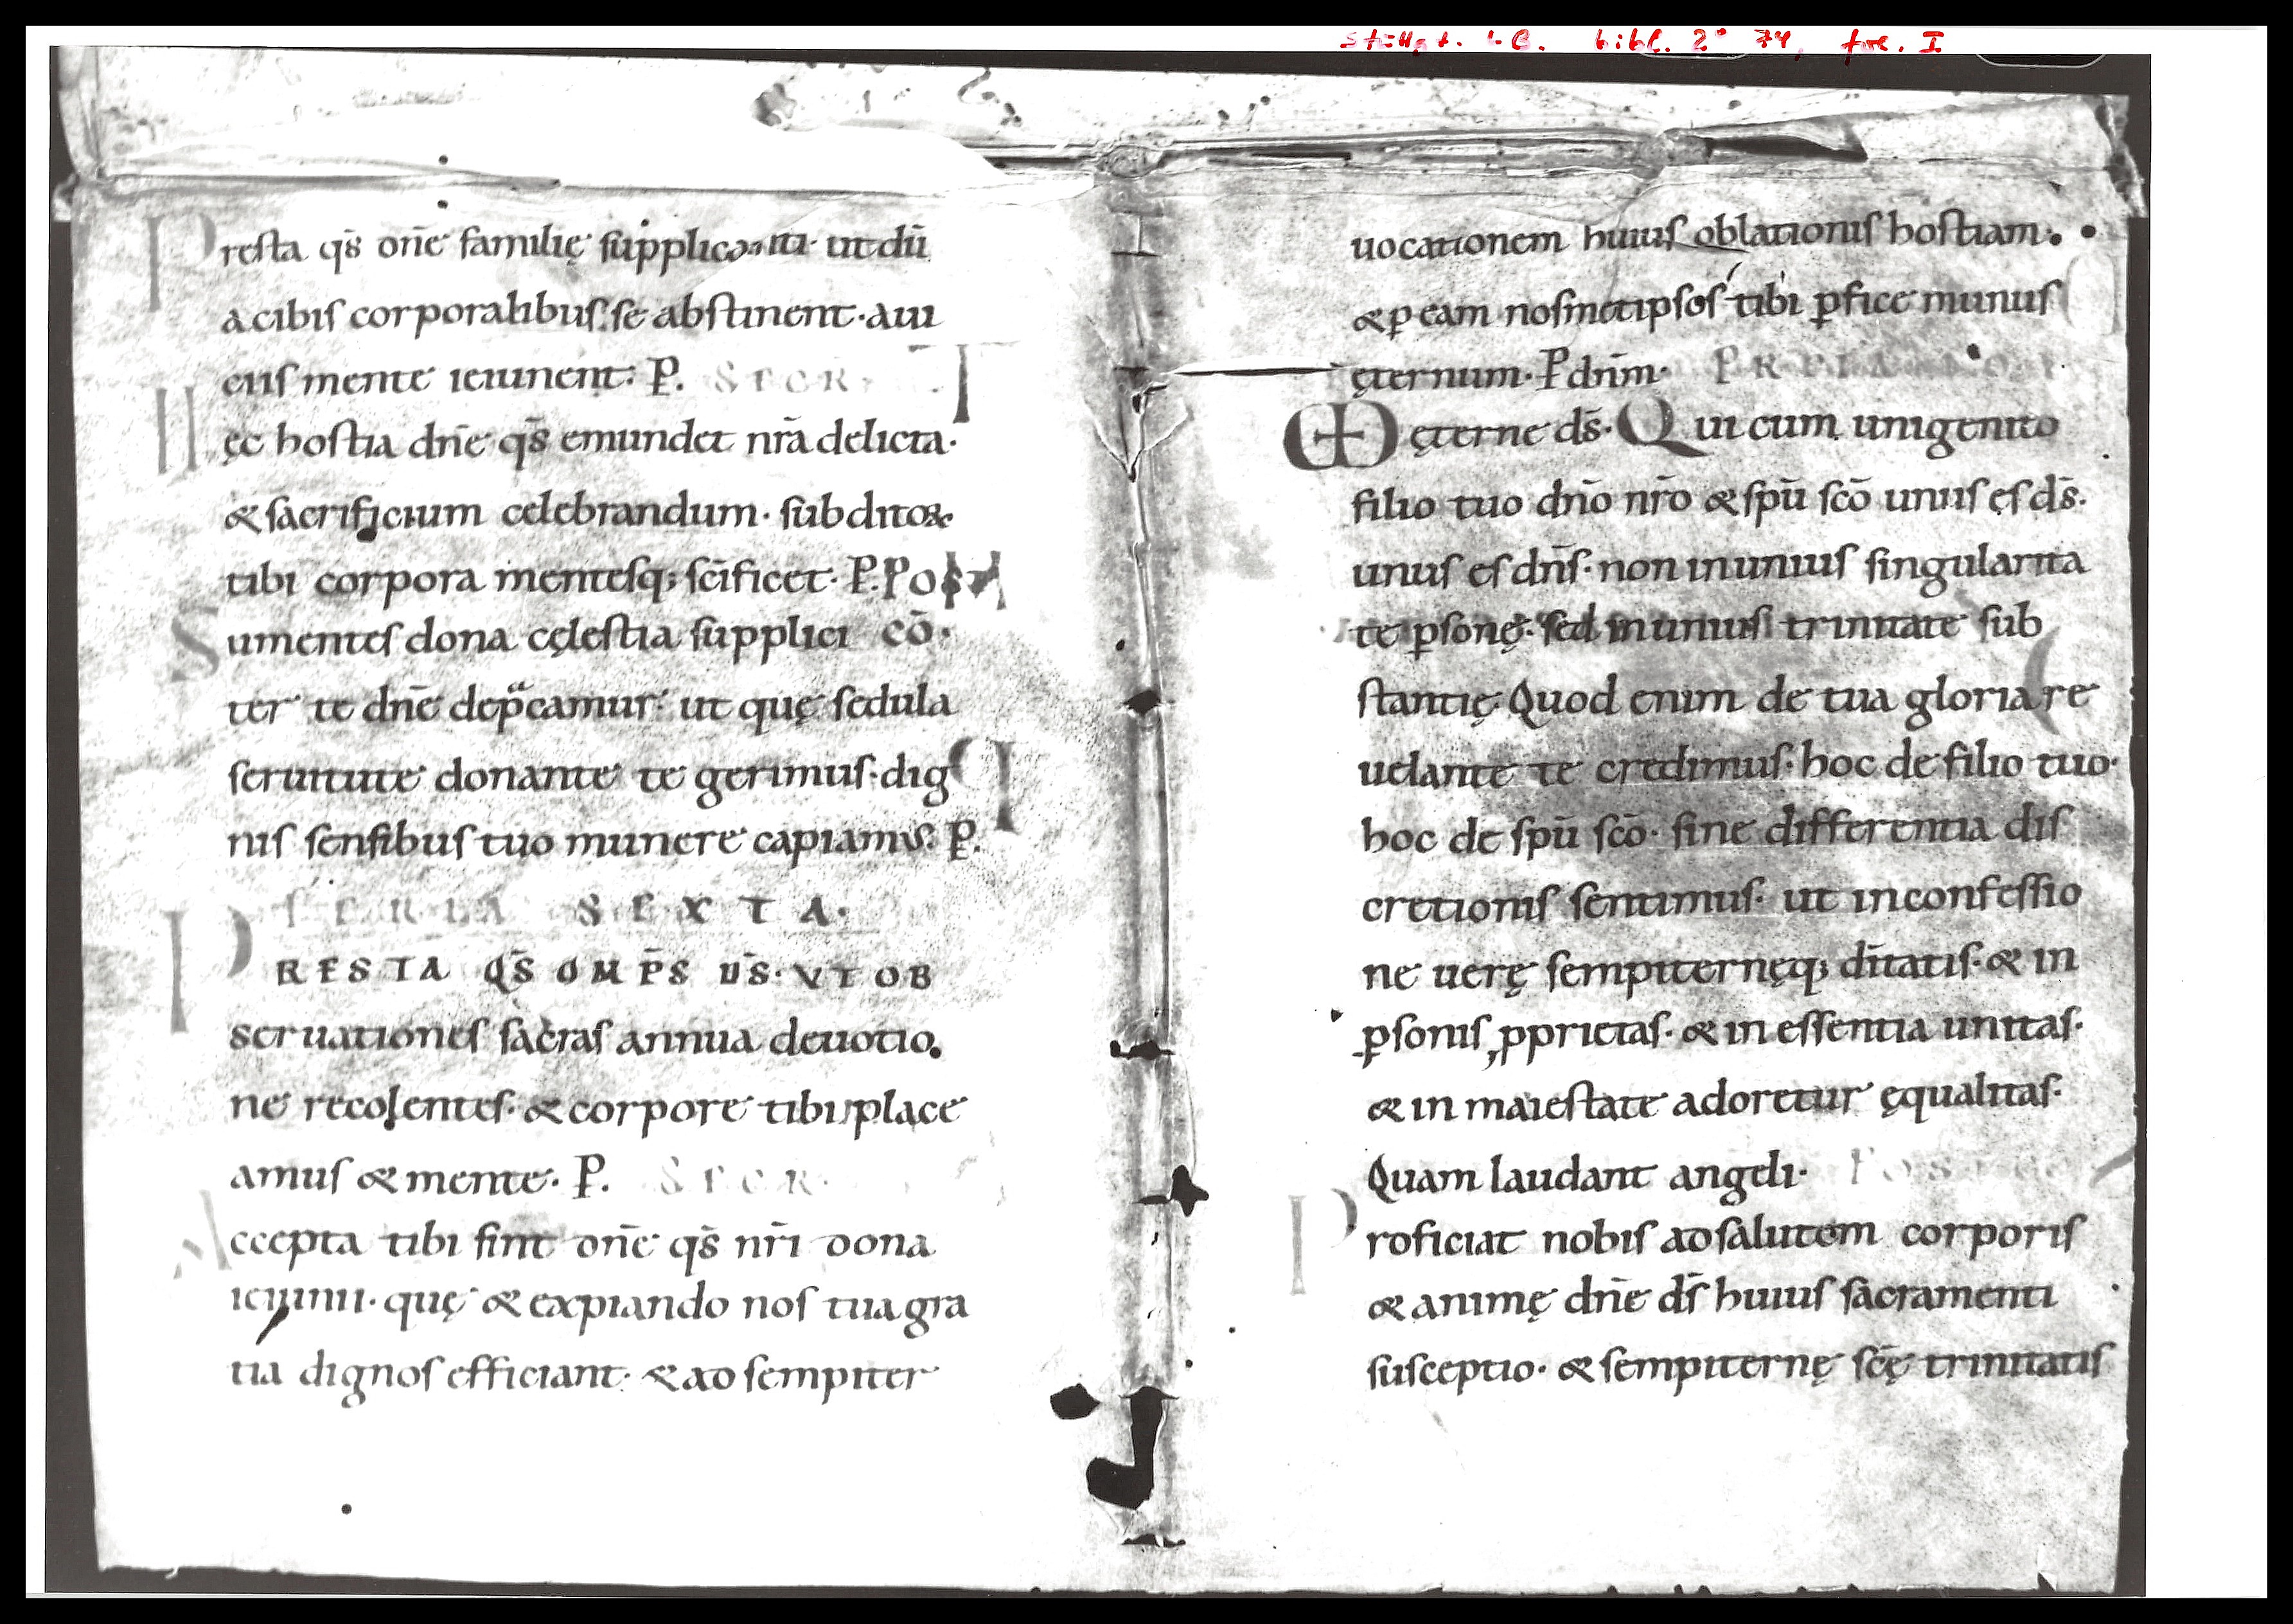 Stuttg. LB. bibl. 2° 74, frc. I
Presta qs̄ dn̄e familię supplicanti· ut dū
a cibis corporalibus se abstinent· a ui
ciis mente ieiunent· P. SECR·
Hęc hostia dn̄e qs̄ emundet nr̄a delicta·
& sacrificium celebrandum· subditoꝝ
tibi corpora mentesq; sc̄ificet· P. POST
Sumentes dona cęlestia supplici CŌ·
ter te dn̄e dep̄camur· ut quę sedula
seruitute donante te gerimus· dig
nis sensibus tuo munere capiamus. P.
FERIA SEXTA·
PRESTA QS̄ OMP̄S DS̄· VT OB
seruationes sacras annua deuotio
ne recolentes· & corpore tibi place
amus & mente· P. SECR·
Accepta tibi sint dn̄e qs̄ nr̄i dona
ieiunii· quę & expiando nos tua gra
tia dignos efficiant· & ad sempiter
uocationem huius oblationis hostiam·
& ꝑ eam nosmetipsos tibi ꝑfice munus
ęternum· P dn̄m·
VD ęterne ds̄· Qui cum unigenito
filio tuo dn̄o nr̄o & spū sc̄o unus es ds̄·
unus es dn̄s· non in unius singularita
te ꝑsonę· sed in unius trinitate sub
stantię· Quod enim de tua gloria re
uelante te credimus· hoc de filio tuo·
hoc de spū sc̄o· sine differentia dis
cretionis sentimus· ut in confessio
ne uerę sempiternęq; dītatis· & in
ꝑsonis ꝓprietas· & in essentia unitas·
& in maiestate adoretur ęqualitas·
Quam laudant angeli· POST
Proficiat nobis ad salutem corporis
& animę dn̄e ds̄ huius sacramenti
susceptio· & sempiternę sc̄ę trinitatis